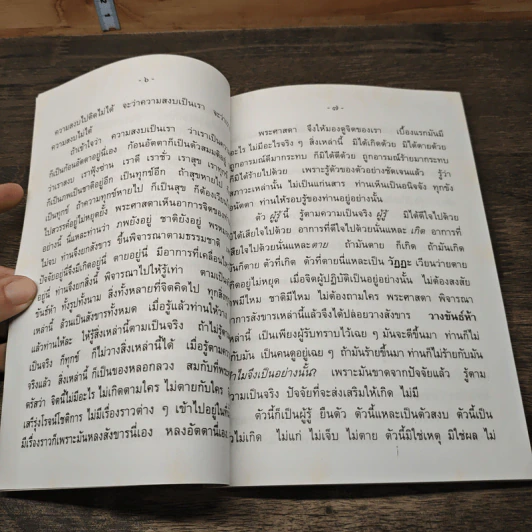 - ๖ -
ความสงบไปคิดไม่ได้ จะว่าความสงบเป็นเรา จะว่า
ความสงบไม่ได้
ถ้าเข้าใจว่า ความสงบเป็นเรา ว่าเราเป็น
ก็เป็นก้อนอัตตาอยู่นี่เอง ก้อนอัตตาก็เป็นตัวสมมติ
ว่าเราสงบ เราฟุ้งซ่าน เราดี เราชั่ว เราสุข เราทุกข์
ก็เป็นภพเป็นชาติอยู่อีก เป็นทุกข์อีก ถ้าสุขหายไป ก็
เป็นทุกข์ ถ้าความทุกข์หายไป ก็เป็นสุข ก็ต้องเวียน
ไปสวรรค์อยู่ไม่หยุดยั้ง พระศาสดาเห็นอาการจิตของ
อย่างนี้ นี่แหละท่านว่า ภพยังอยู่ ชาติยังอยู่ พรหม
ไม่จบ ท่านจึงยกสังขาร ขึ้นพิจารณาตามธรรมชาติ
ปัจจัยอยู่นี่จึงมีเกิดอยู่นี่ ตายอยู่นี่ มีอาการที่เคลื่อนไ
อยู่นี่ ท่านจึงยกสิ่งนี้ พิจารณาไปให้รู้เท่า ตามเป็น
ขันธ์ห้า ทั้งรูปทั้งนาม สิ่งทั้งหลายที่จิตคิดไป ทุกสิ่ง
เหล่านี้ ล้วนเป็นสังขารทั้งหมด เมื่อรู้แล้วท่านให้วาง
แล้วท่านให้ละ ให้รู้สิ่งเหล่านี้ตามเป็นจริง ถ้าไม่รู้ต
เป็นจริง ก็ทุกข์ ก็ไม่วางสิ่งเหล่านี้ได้ เมื่อรู้ตาม
จริงแล้ว สิ่งเหล่านี้ ก็เป็นของหลอกลวง สมกับที่พระ
ตรัสว่า จิตนี้ไม่มีอะไร ไม่เกิดตามใคร ไม่ตายกับใคร
เสรีรุ่งโรจน์โชติการ ไม่มีเรื่องราวต่าง ๆ เข้าไปอยู่ใน
มีเรื่องราวก็เพราะมันหลงสังขารนี่เอง หลงอัตตานี่เอ
- ๗ -
พระศาสดา จึงให้มองดูจิตของเรา เบื้องแรกมันมี
อะไร ไม่มีอะไรจริง ๆ สิ่งเหล่านี้ มิได้เกิดด้วย มิได้ตายด้วย
ถูกอารมณ์ดีมากระทบ ก็มิได้ดีด้วย ถูกอารมณ์ร้ายมากระทบ
ก็มิได้ร้ายไปด้วย เพราะรู้ตัวของตัวอย่างชัดเจนแล้ว รู้ว่า
สภาวะเหล่านั้น ไม่เป็นแก่นสาร ท่านเห็นเป็นอนิจจัง ทุกขัง
อนัตตา ท่านให้รอบรู้ของท่านอยู่อย่างนั้น
ตัว ผู้รู้ นี้ รู้ตามความเป็นจริง ผู้รู้ มิได้ดีใจไปด้วย
มิได้เสียใจไปด้วย อาการที่ดีใจไปด้วยนั่นแหละ เกิด อาการที่
เสียใจไปด้วยนั่นแหละตาย ถ้ามันตาย ก็เกิด ถ้ามันเกิด
มันก็ตาย ตัวที่เกิด ตัวที่ตายนี่แหละเป็น วัฏฏะ เวียนว่ายตาย
เกิดอยู่ไม่หยุด เมื่อจิตผู้ปฏิบัติเป็นอยู่อย่างนั้น ไม่ต้องสงสัย
ภพมีไหม ชาติมีไหม ไม่ต้องถามใคร พระศาสดา พิจารณา
อาการสังขารเหล่านี้แล้วจึงได้ปล่อยวางสังขาร วางขันธ์ห้า
เหล่านี้ เป็นเพียงผู้รับทราบไว้เฉย ๆ มันจะดีขึ้นมา ท่านก็ไม่
ดีกับมัน เป็นคนดูอยู่เฉย ๆ ถ้ามันร้ายขึ้นมา ท่านก็ไม่ร้ายกับมัน
ทำไมจึงเป็นอย่างนั้น? เพราะมันขาดจากปัจจัยแล้ว รู้ตาม
ความเป็นจริง ปัจจัยที่จะส่งเสริมให้เกิด ไม่มี
ตัวนี้ก็เป็นผู้รู้ ยืนตัว ตัวนี้แหละเป็นตัวสงบ ตัวนี้เป็น
ตัวไม่เกิด ไม่แก่ ไม่เจ็บ ไม่ตาย ตัวนี้มิใช่เหตุ มิใช่ผล ไม่